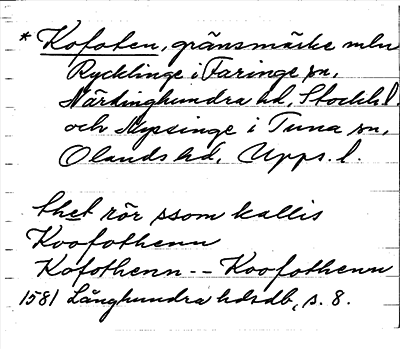 * Kofoten, gränsmärke mln
Rycklinge i Faringe sn,
Närdinghundra hd, Stockh. l.
och Nyssinge i Tuna sn,
Olands hd, Upps. l.
thet rör ssom kallis
Koofothenn
Kofothenn -- Koofothenn
1581 Långhundra hdrdb, s. 8.